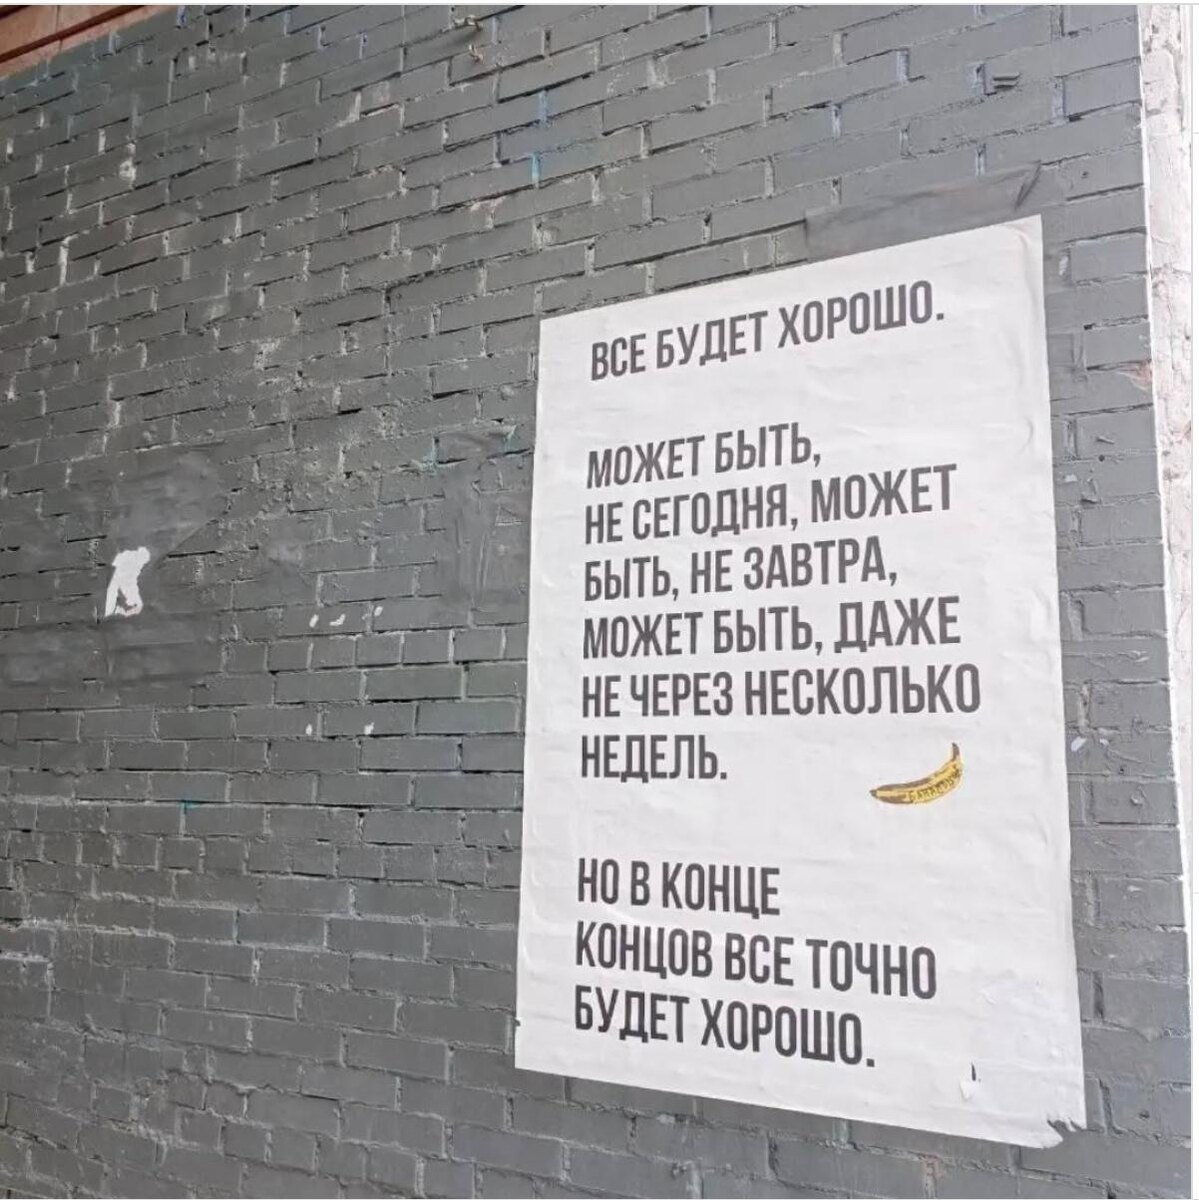 ВСЕ БУДЕТ ХОРОШО.
МОЖЕТ БЫТЬ,
НЕ СЕГОДНЯ, МОЖЕТ
БЫТЬ, НЕ ЗАВТРА,
МОЖЕТ БЫТЬ, ДАЖЕ
НЕ ЧЕРЕЗ НЕСКОЛЬКО
НЕДЕЛЬ.
НО В КОНЦЕ
КОНЦОВ ВСЕ ТОЧНО
БУДЕТ ХОРОШО.